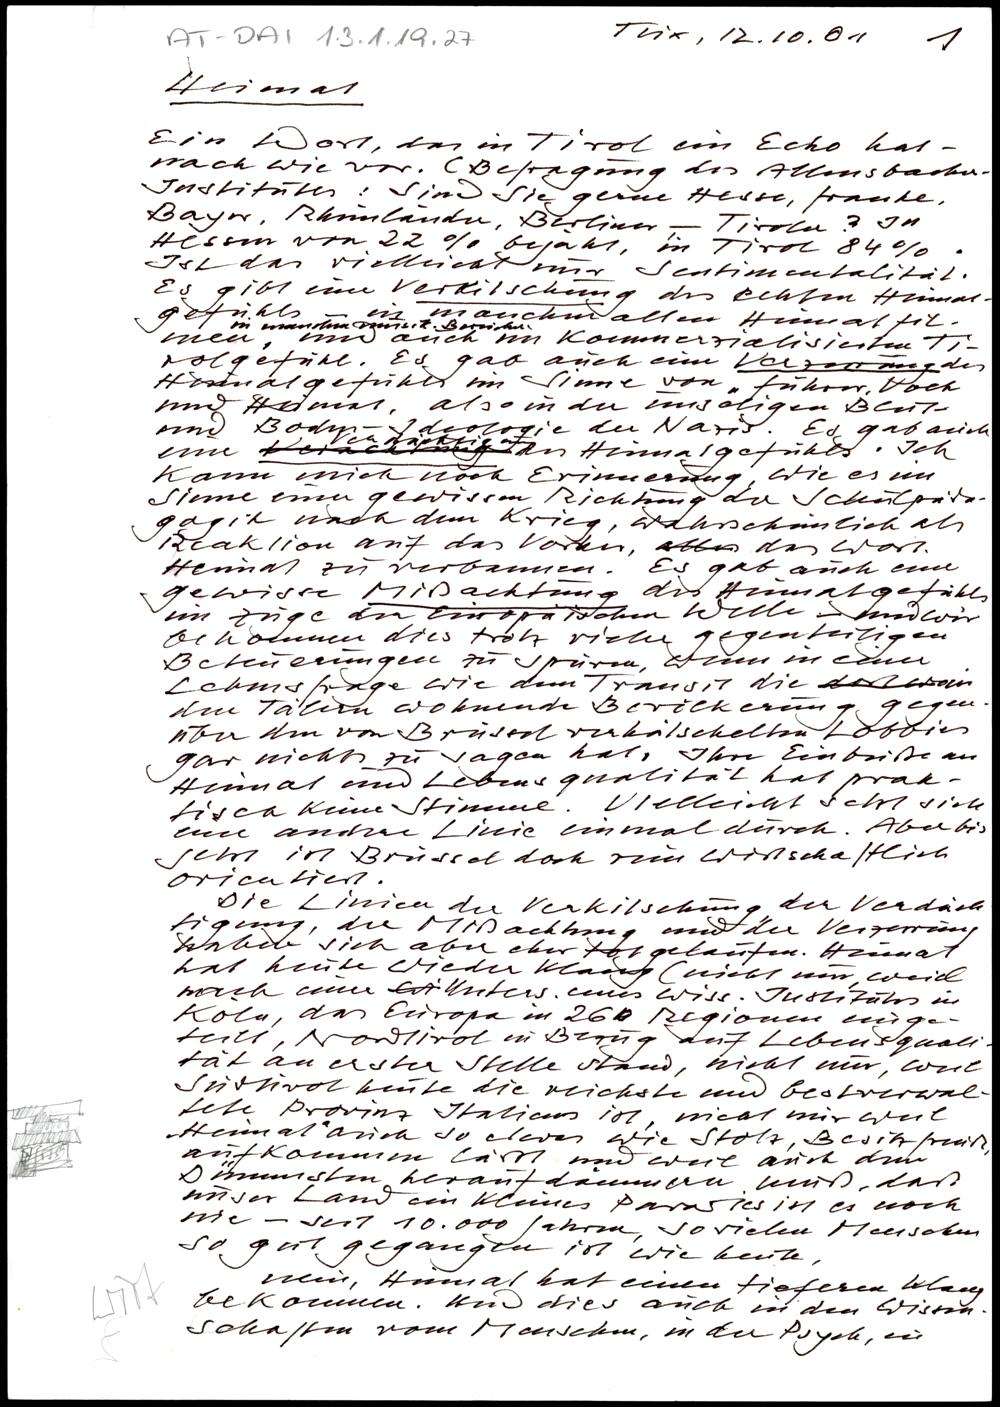 AT-DAI 1.3.1.19.27
Thix, 12.10.01 1
Heimat
Ein Wort, das in Tirol ein Echo hat -
nach wie vor. (Befragung des Allensbacher-
Institutes: Sind Sie gerne Hesse, Franke,
Bayer, Rheinländer, Berliner - Tiroler? In
Hessen von 22 % bejaht, in Tirol 84 %.
Ist das vielleicht nur Sentimentalität.
Es gibt eine Verkitschung des echten Heimat-
gefühls - in manchen alten Heimatfil-
in manchen musik. Bereichen
men, und auch im Kommerzialisierten Ti-
rolgefühl. Es gab auch eine Verzerrung des
Heimatgefühls im Sinne von "Führer, Volk
und Heimat, also in der unseligen Blut-
und Boden-Ideologie der Nazis. Es gab auch
Verdächtigung
eine Verachtung des Heimatgefühls. Ich
kann mich noch Erinnerung, wie es im
Sinne einer gewissen Richtung der Schulpäda-
gogik nach dem Krieg, wahrscheinlich als
Reaktion auf das Vorher, alles das Wort
Heimat zu verbannen. Es gab auch eine
gewisse Mißachtung des Heimatgefühls
im Zuge der Europäischen Welle - und wir
bekommen dies trotz vieler gegenteiligen
Beteuerungen zu spüren, wenn in einer
Lebensfrage wie dem Transit die dort in
den Tälern wohnende Bevölkerung gegen-
über den von Brüssel verhätschelten Lobbies
gar nichts zu sagen hat. Ihre Einbuße an
Heimat und Lebensqualität hat prak-
tisch keine Stimme. Vielleicht setzt sich
eine andere Linie einmal durch. Aber bis
jetzt ist Brüssel doch rein wirtschaftlich
orientiert.
Die Linien der Verkitschung, der Verdäch
tigung, der Mißachtung und der Verzerrung
haben sich aber eher tot gelaufen. Heimat
hat heute wieder Klang (nicht nur, weil
nach einer Unters. eines wiss. Institutes in
Köln, das Europa in 260 Regionen einge-
teilt, Nordtirol in Bezug auf Lebensquali-
tät an erster Stelle stand, nicht nur, weil
Südtirol heute die reichste und bestverwal-
tete Provinz Italiens ist, nicht nur weil
"Heimat" auch so etwas wie Stolz, Besitzfreude,
aufkommen läßt und weil auch dem
Dümmsten heraufdämmern muß, daß
unser Land ein kleines Paradies ist es noch
nie - seit 10.000 Jahren, so vielen Menschen
so gut gegangen ist wie heute,
nein, Heimat hat einen tieferen Klang
bekommen. Und dies auch in den Wissen-
schaften vom Menschen, in der Psych, in